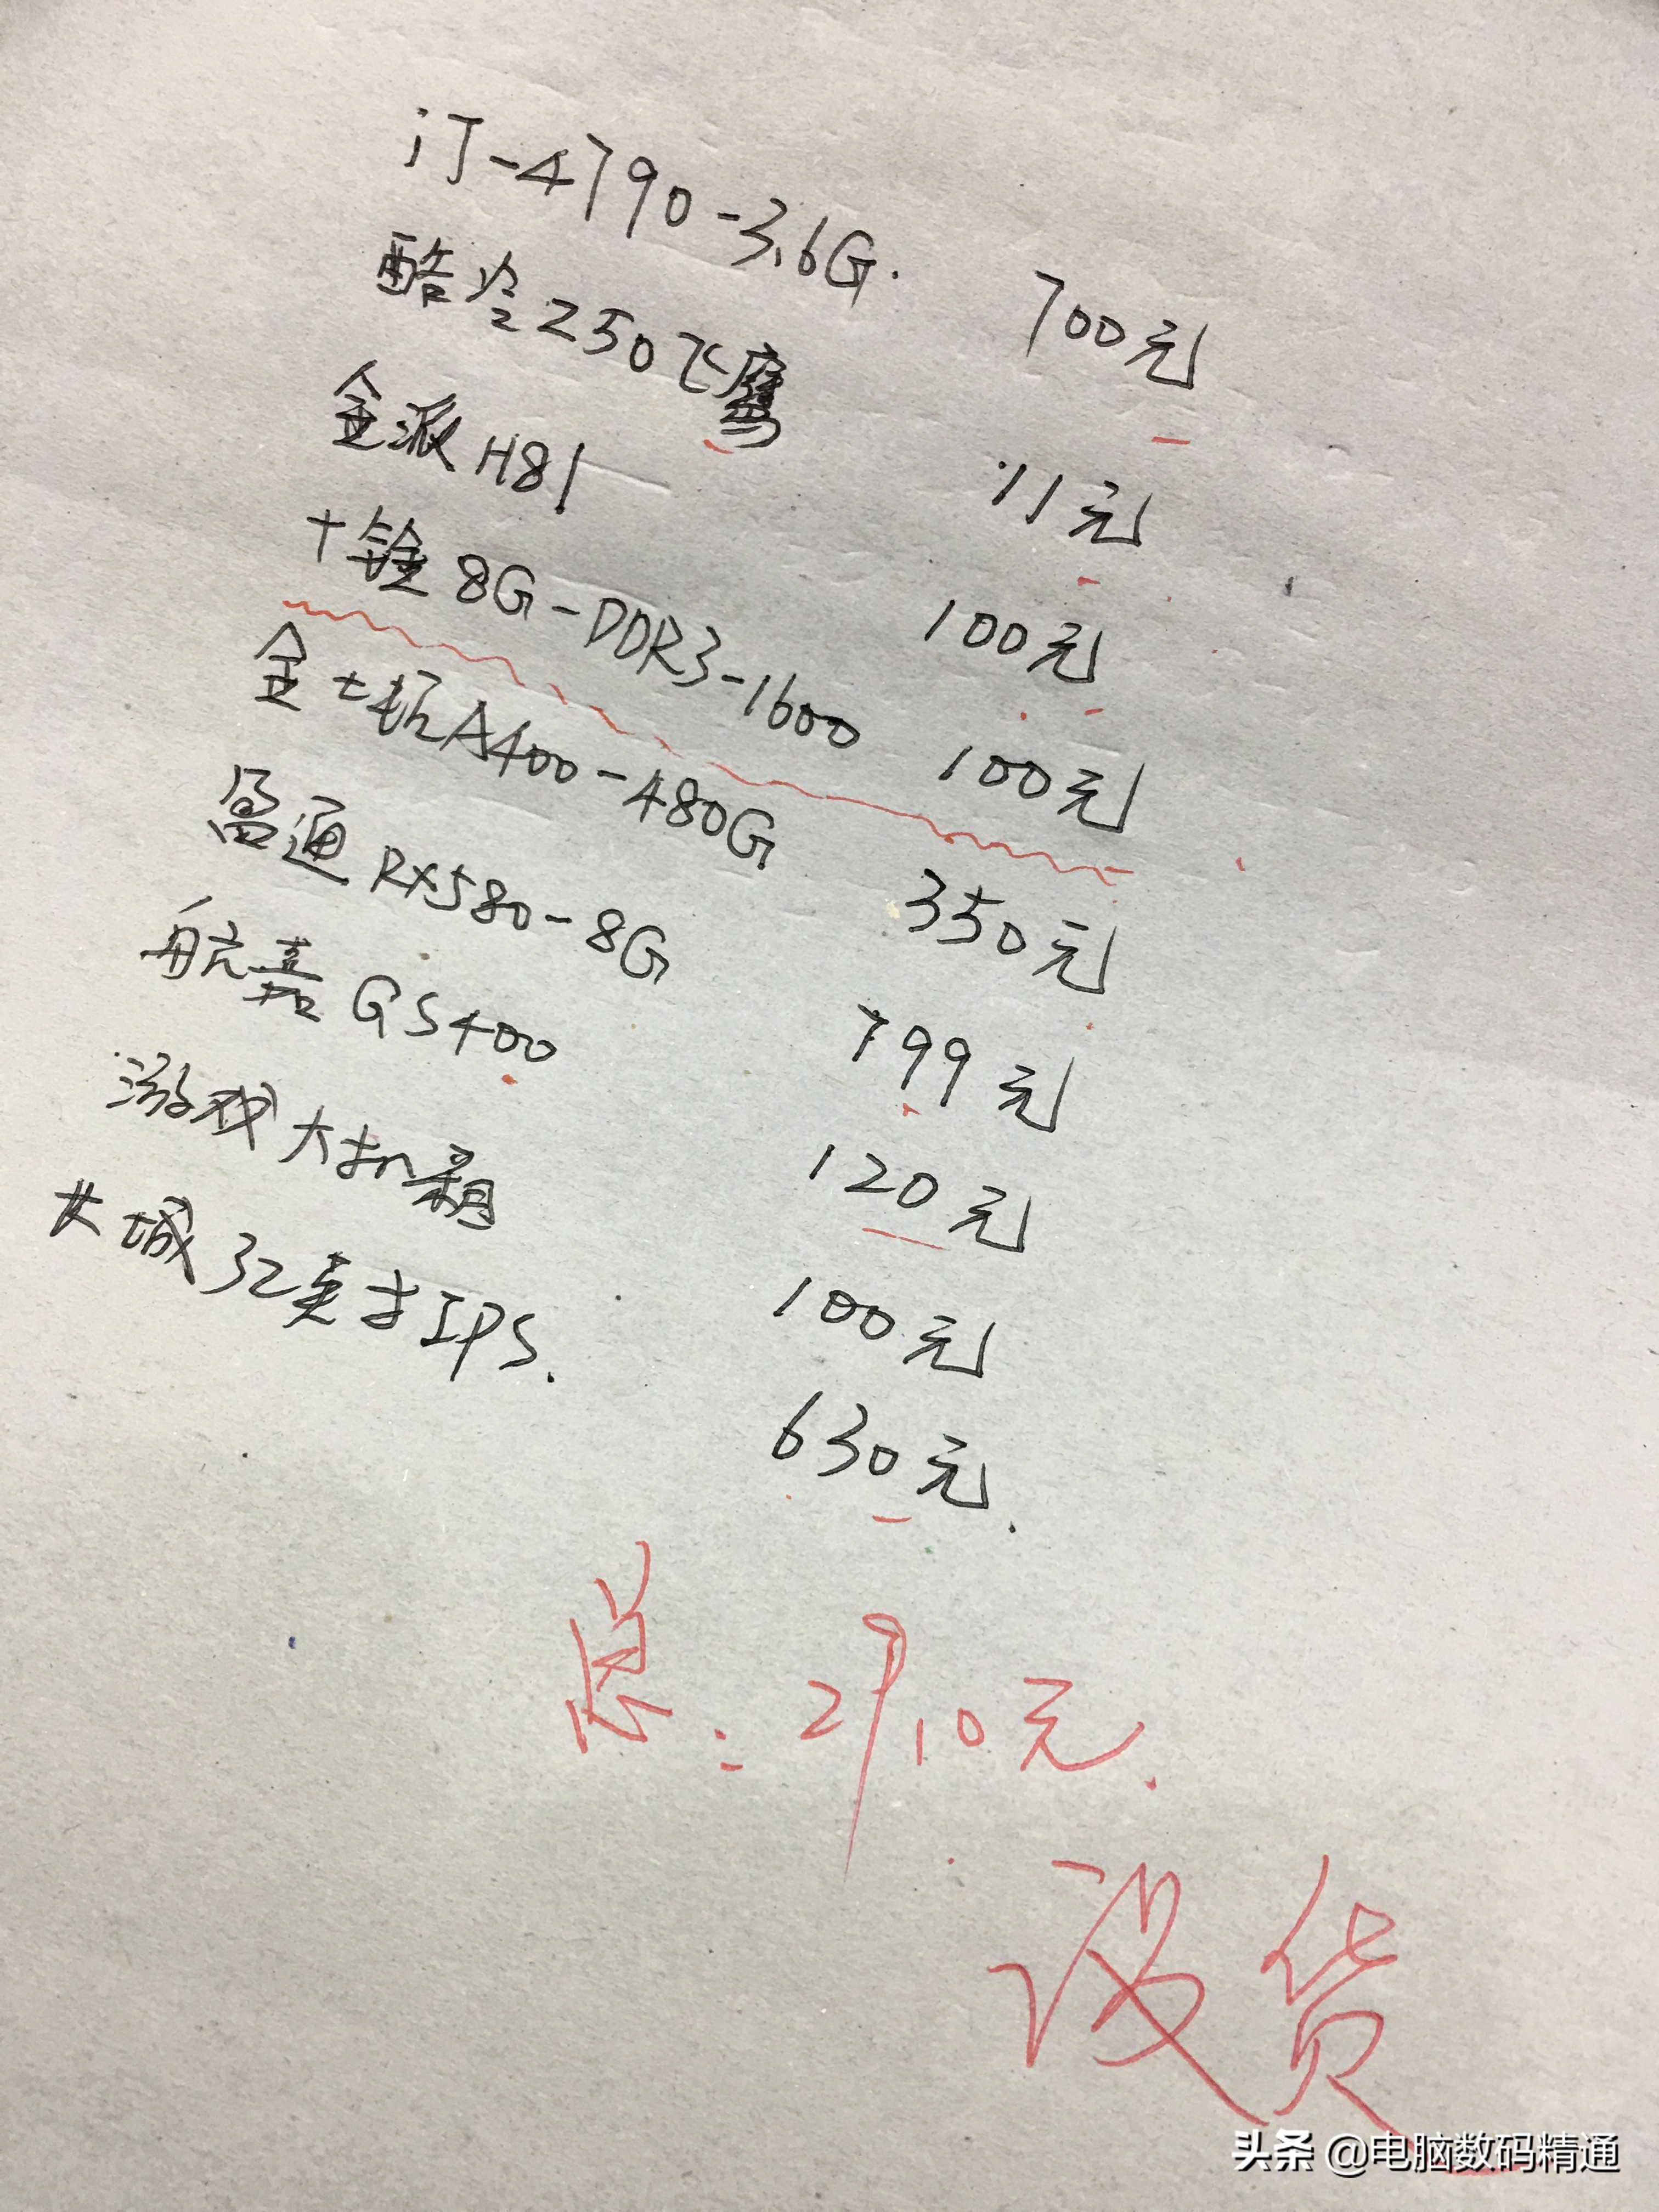 i7-4790-3.6G. 700元
酷冷Z50飞鹰 11元
金派H81 100元
十铨8G-DDR3-1600 100元
金士顿A400-480G 350元
盈通RX580-8G 799元
航嘉GS400 120元
游戏大机箱 100元
长城32英寸IPS. 630元.
总:2910元.
没货
头条 @电脑数码精通